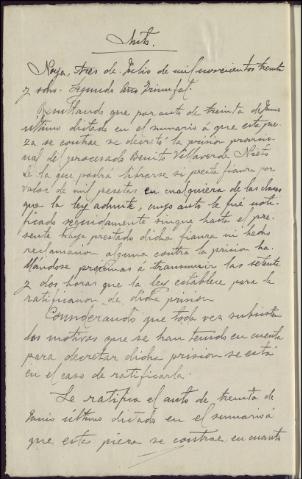 Auto.
Noya, tres de Julio de mil novecientos treinta
y ocho. Segundo Año Triunfal.
Resultando que por auto de treinta de Junio
último dictado en el sumario á que esta pie-
za se contrae se decretó la prisión provisio-
nal del procesado Benito Villaverde Nieto
de la que podrá librarse si presta fianza por
valor de mil pesetas en cualquiera de las clases
que la ley admite, cuyo auto le fué noti-
ficado seguidamente sin que hasta el pre-
sente haya prestado dicha fianza ni hecho
reclamación alguna contra la prisión ha-
llándose próximas á transcurrir las setenta
y dos horas que la ley establece para la
ratificación de dicha prisión.
Considerando que toda vez subsisten
los motivos que se han tenido en cuenta
para decretar dicha prisión se está
en el caso de ratificarla.
Se ratifica el auto de treinta de
Junio último dictado en el sumario á
que esta pieza se contrae, en cuanto